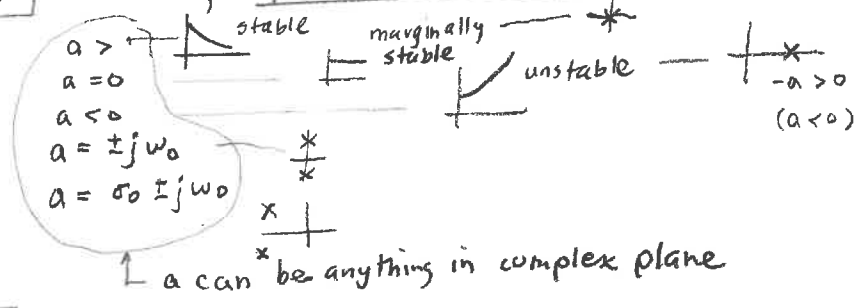 a > stable marginally
a = 0 stable unstable
a < 0 -a > 0
a = ± j ω₀ (a < 0)
a = σ₀ ± j ω₀
a can be anything in complex plane